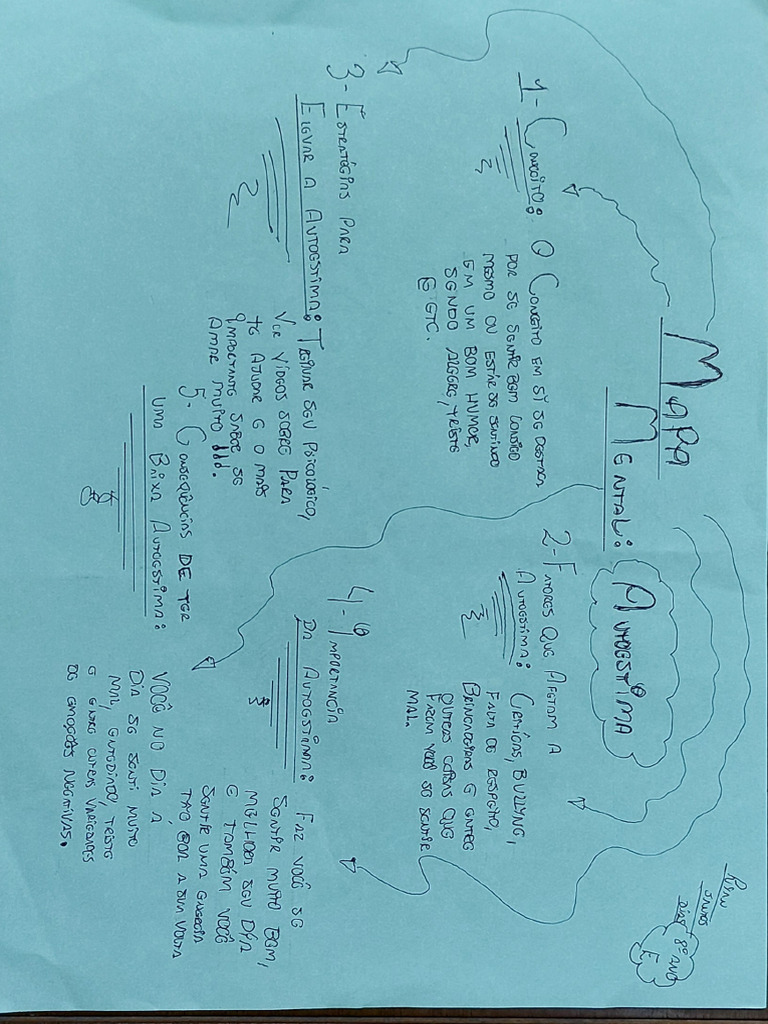 Mapa
Mental:
Autoestima
Dias 8º ano
E
1- Conceito: O Conceito em sí se destaca
por se sentir bem consigo
mesmo ou estár se sentindo
em um bom humor,
sendo alegre, triste
e etc.
2- Fatores Que Afetam a
Autoestima: Críticas, Bullying,
Falta de respeito,
Brincadeiras e entre
outras coisas que
fazem você se sentir
mal.
3- Estratégias Para
Elevar a Autoestima: Treinar seu psicológico,
Ver vídeos sobre para
te ajudar e o mais
importante sabe se
amar muito!!!.
4- Importância
Da Autoestima: Faz você se
sentir muito bem,
melhora seu día
e também você
sentir uma energia
tão boa a sua volta
5- Consequências de ter
uma Baixa Autoestima:
Você no dia a
Dia se senti muito
mal, entediado, triste
e entre outras variedades
de emoções negativas.